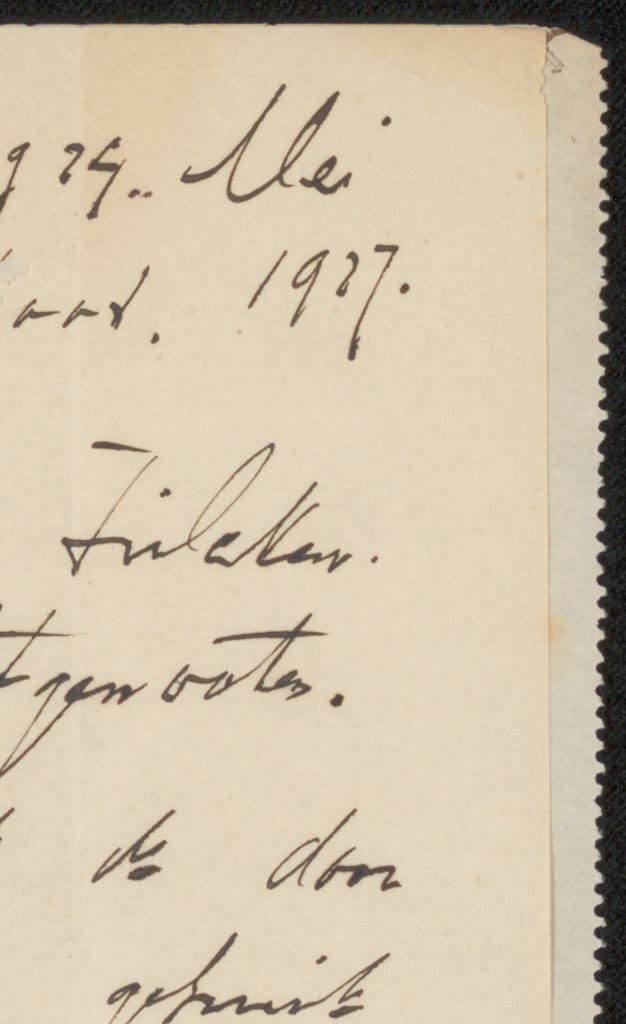 g 24. Mei
1927.
Zilcken.
tgenooten.
de door
gebruik